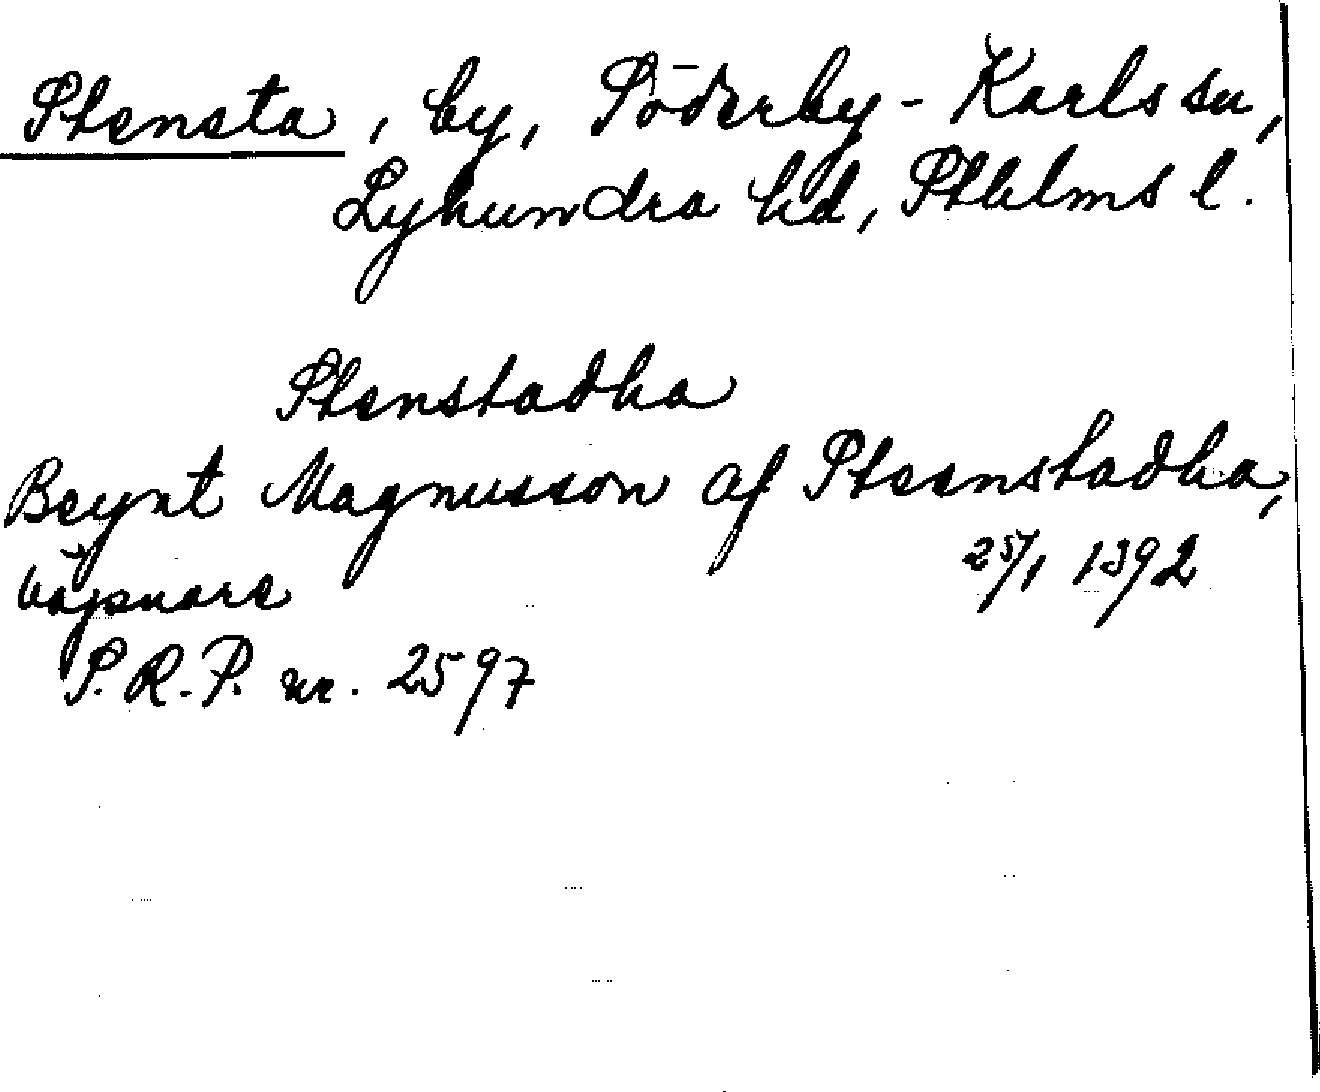 Stensta, by, Söderby-Karls sn,
Lyhundra hd, Sthlms l.
Stenstadha
Beynt Magnusson af Steenstadha,
väpnare 25/1 1392
S.R.P. nr. 2597